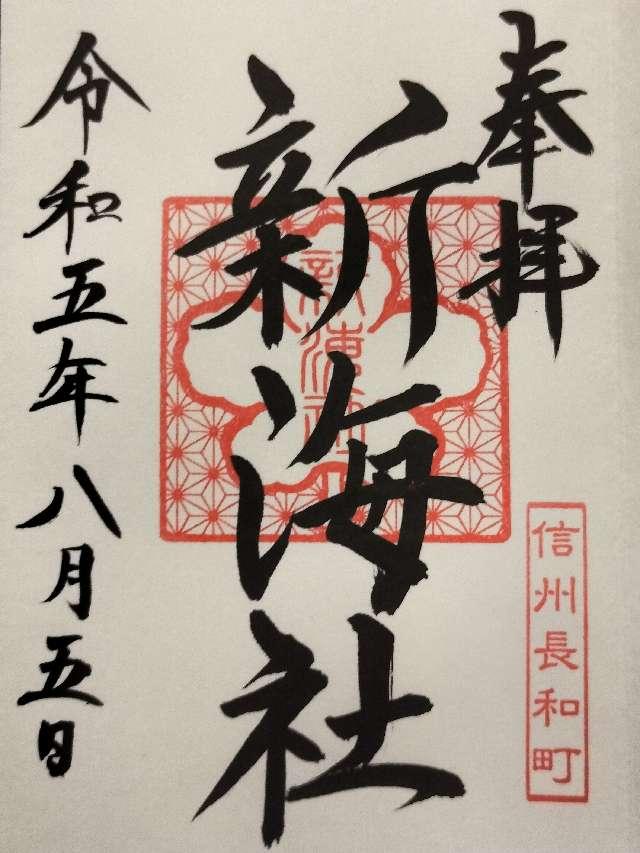 奉拝
信州長和町
新海社
新海社
令和五年八月五日